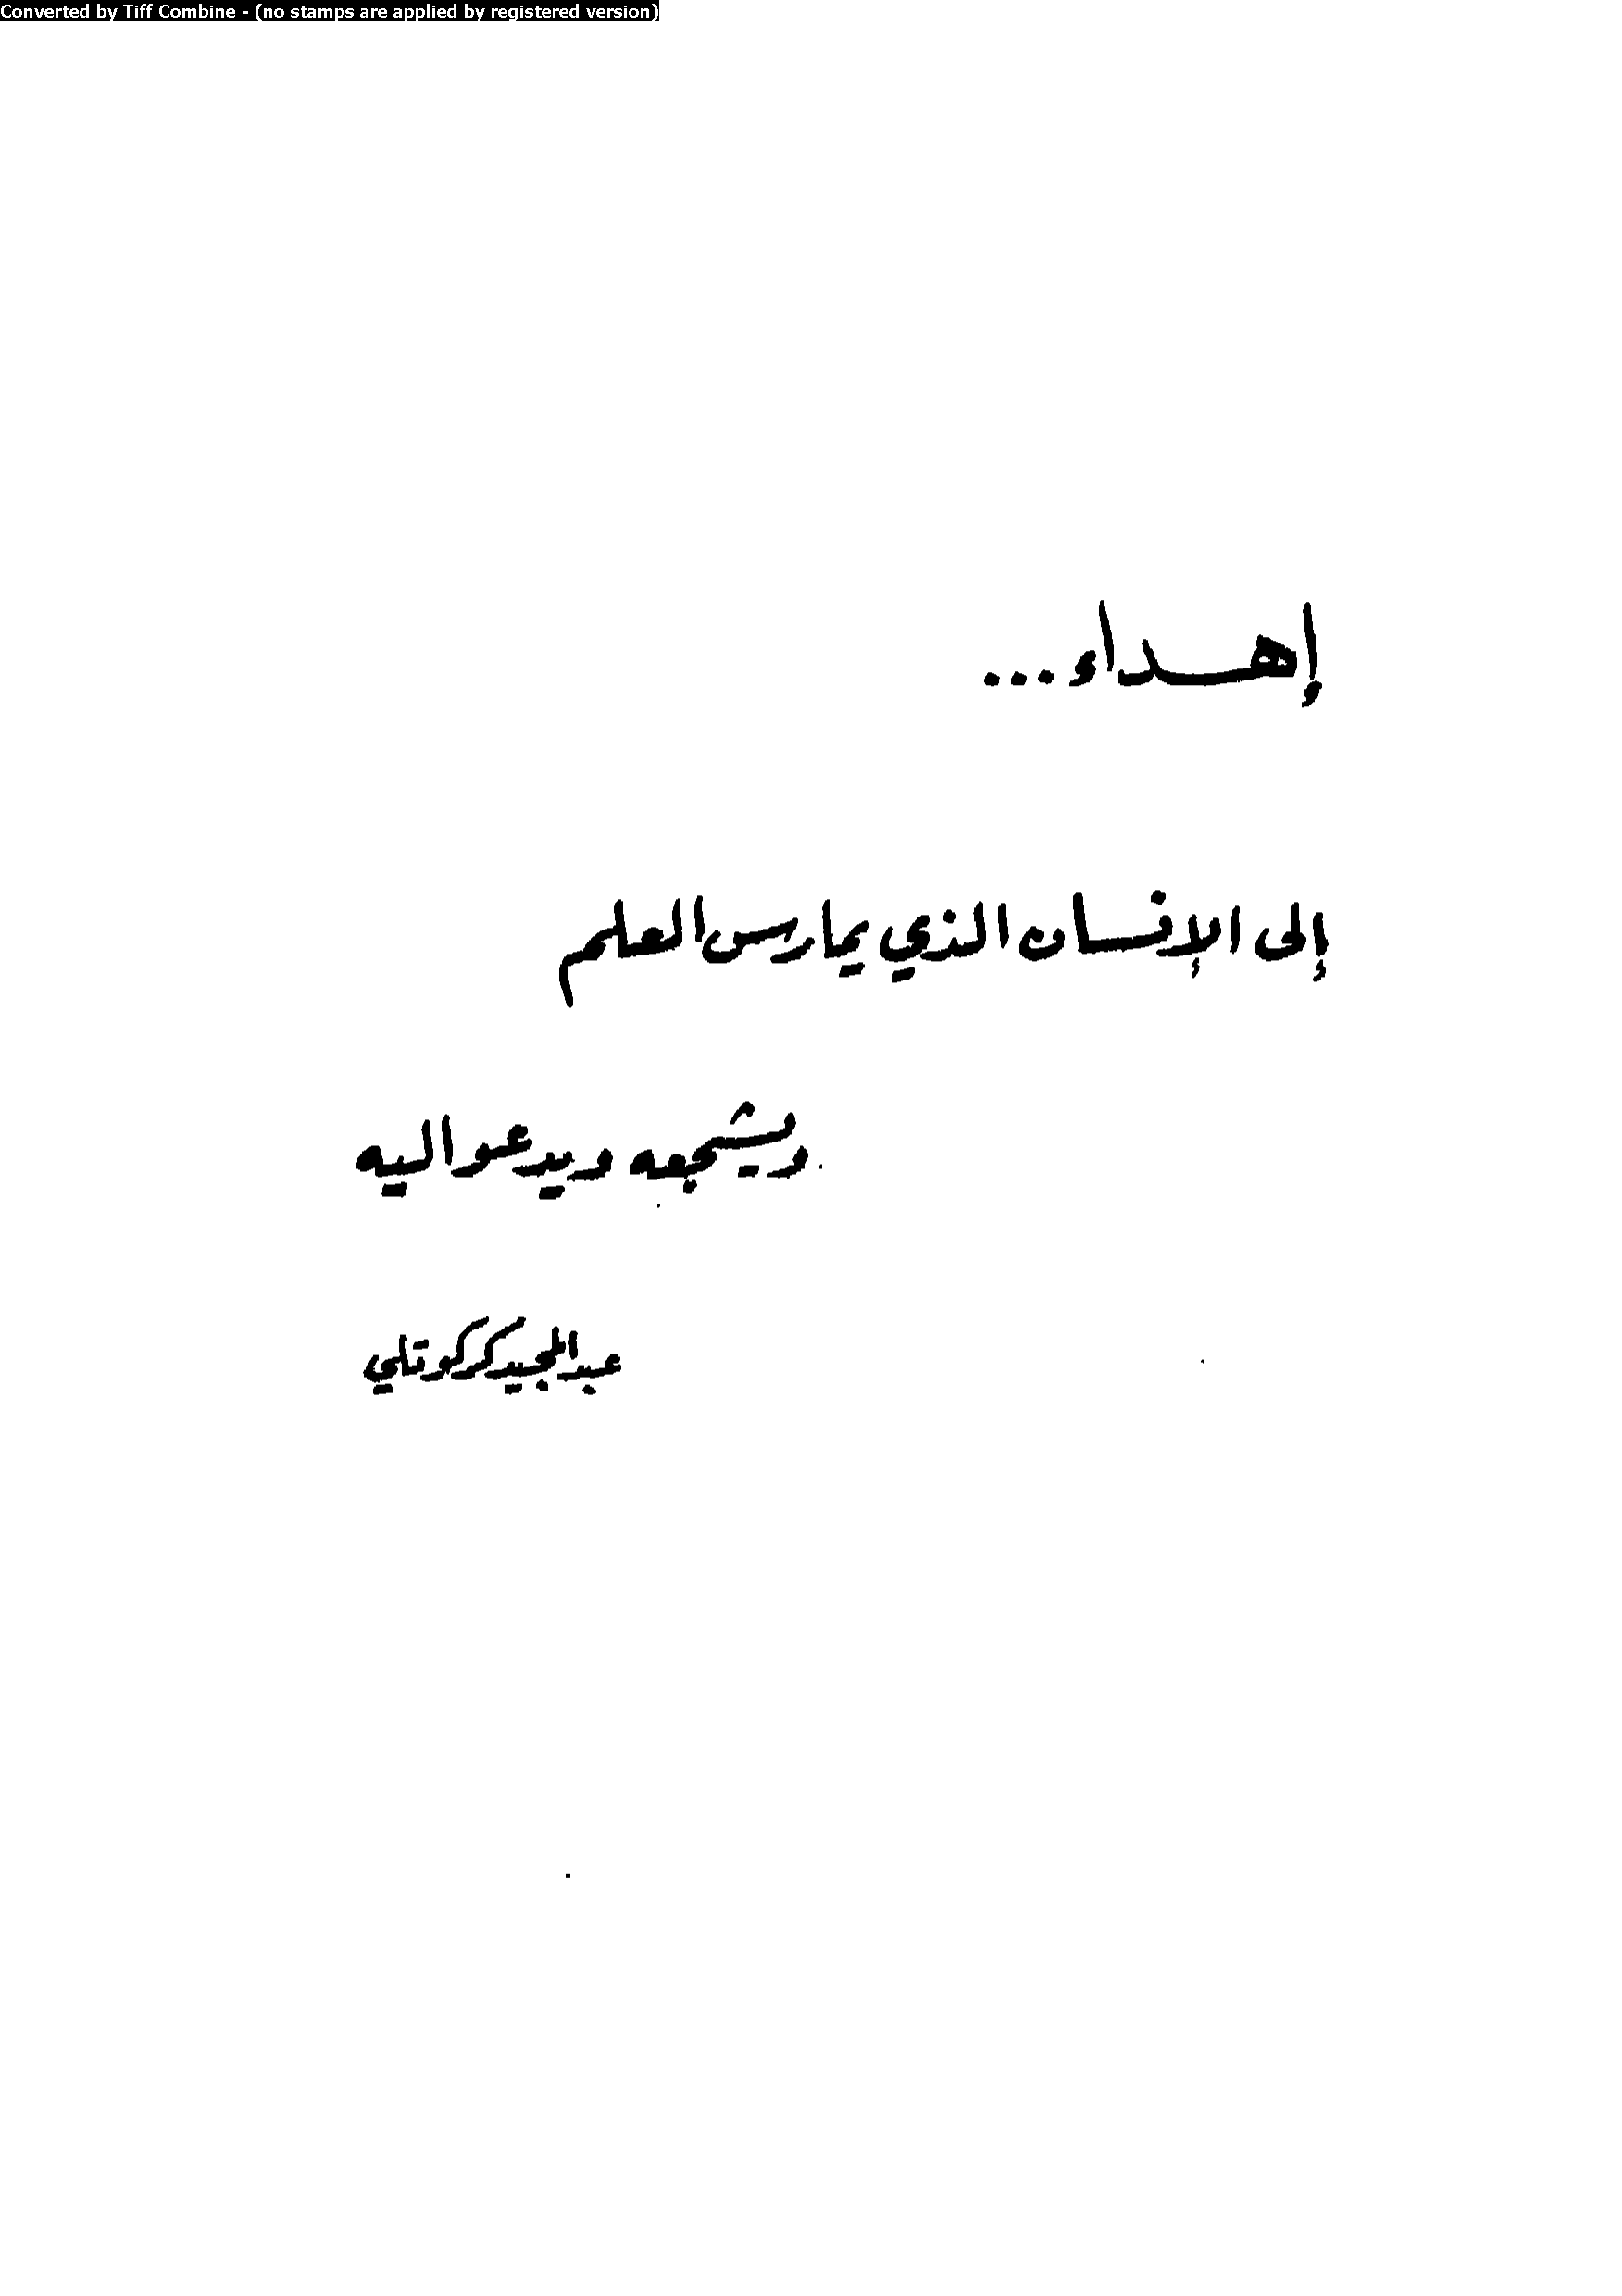 Converted by Tiff Combine - (no stamps are applied by registered version)
إهداء...
إلى الإنسان الذي يمارس العلم
ويشجعه ويدعو اليه
عبد المجيد كركوتلي